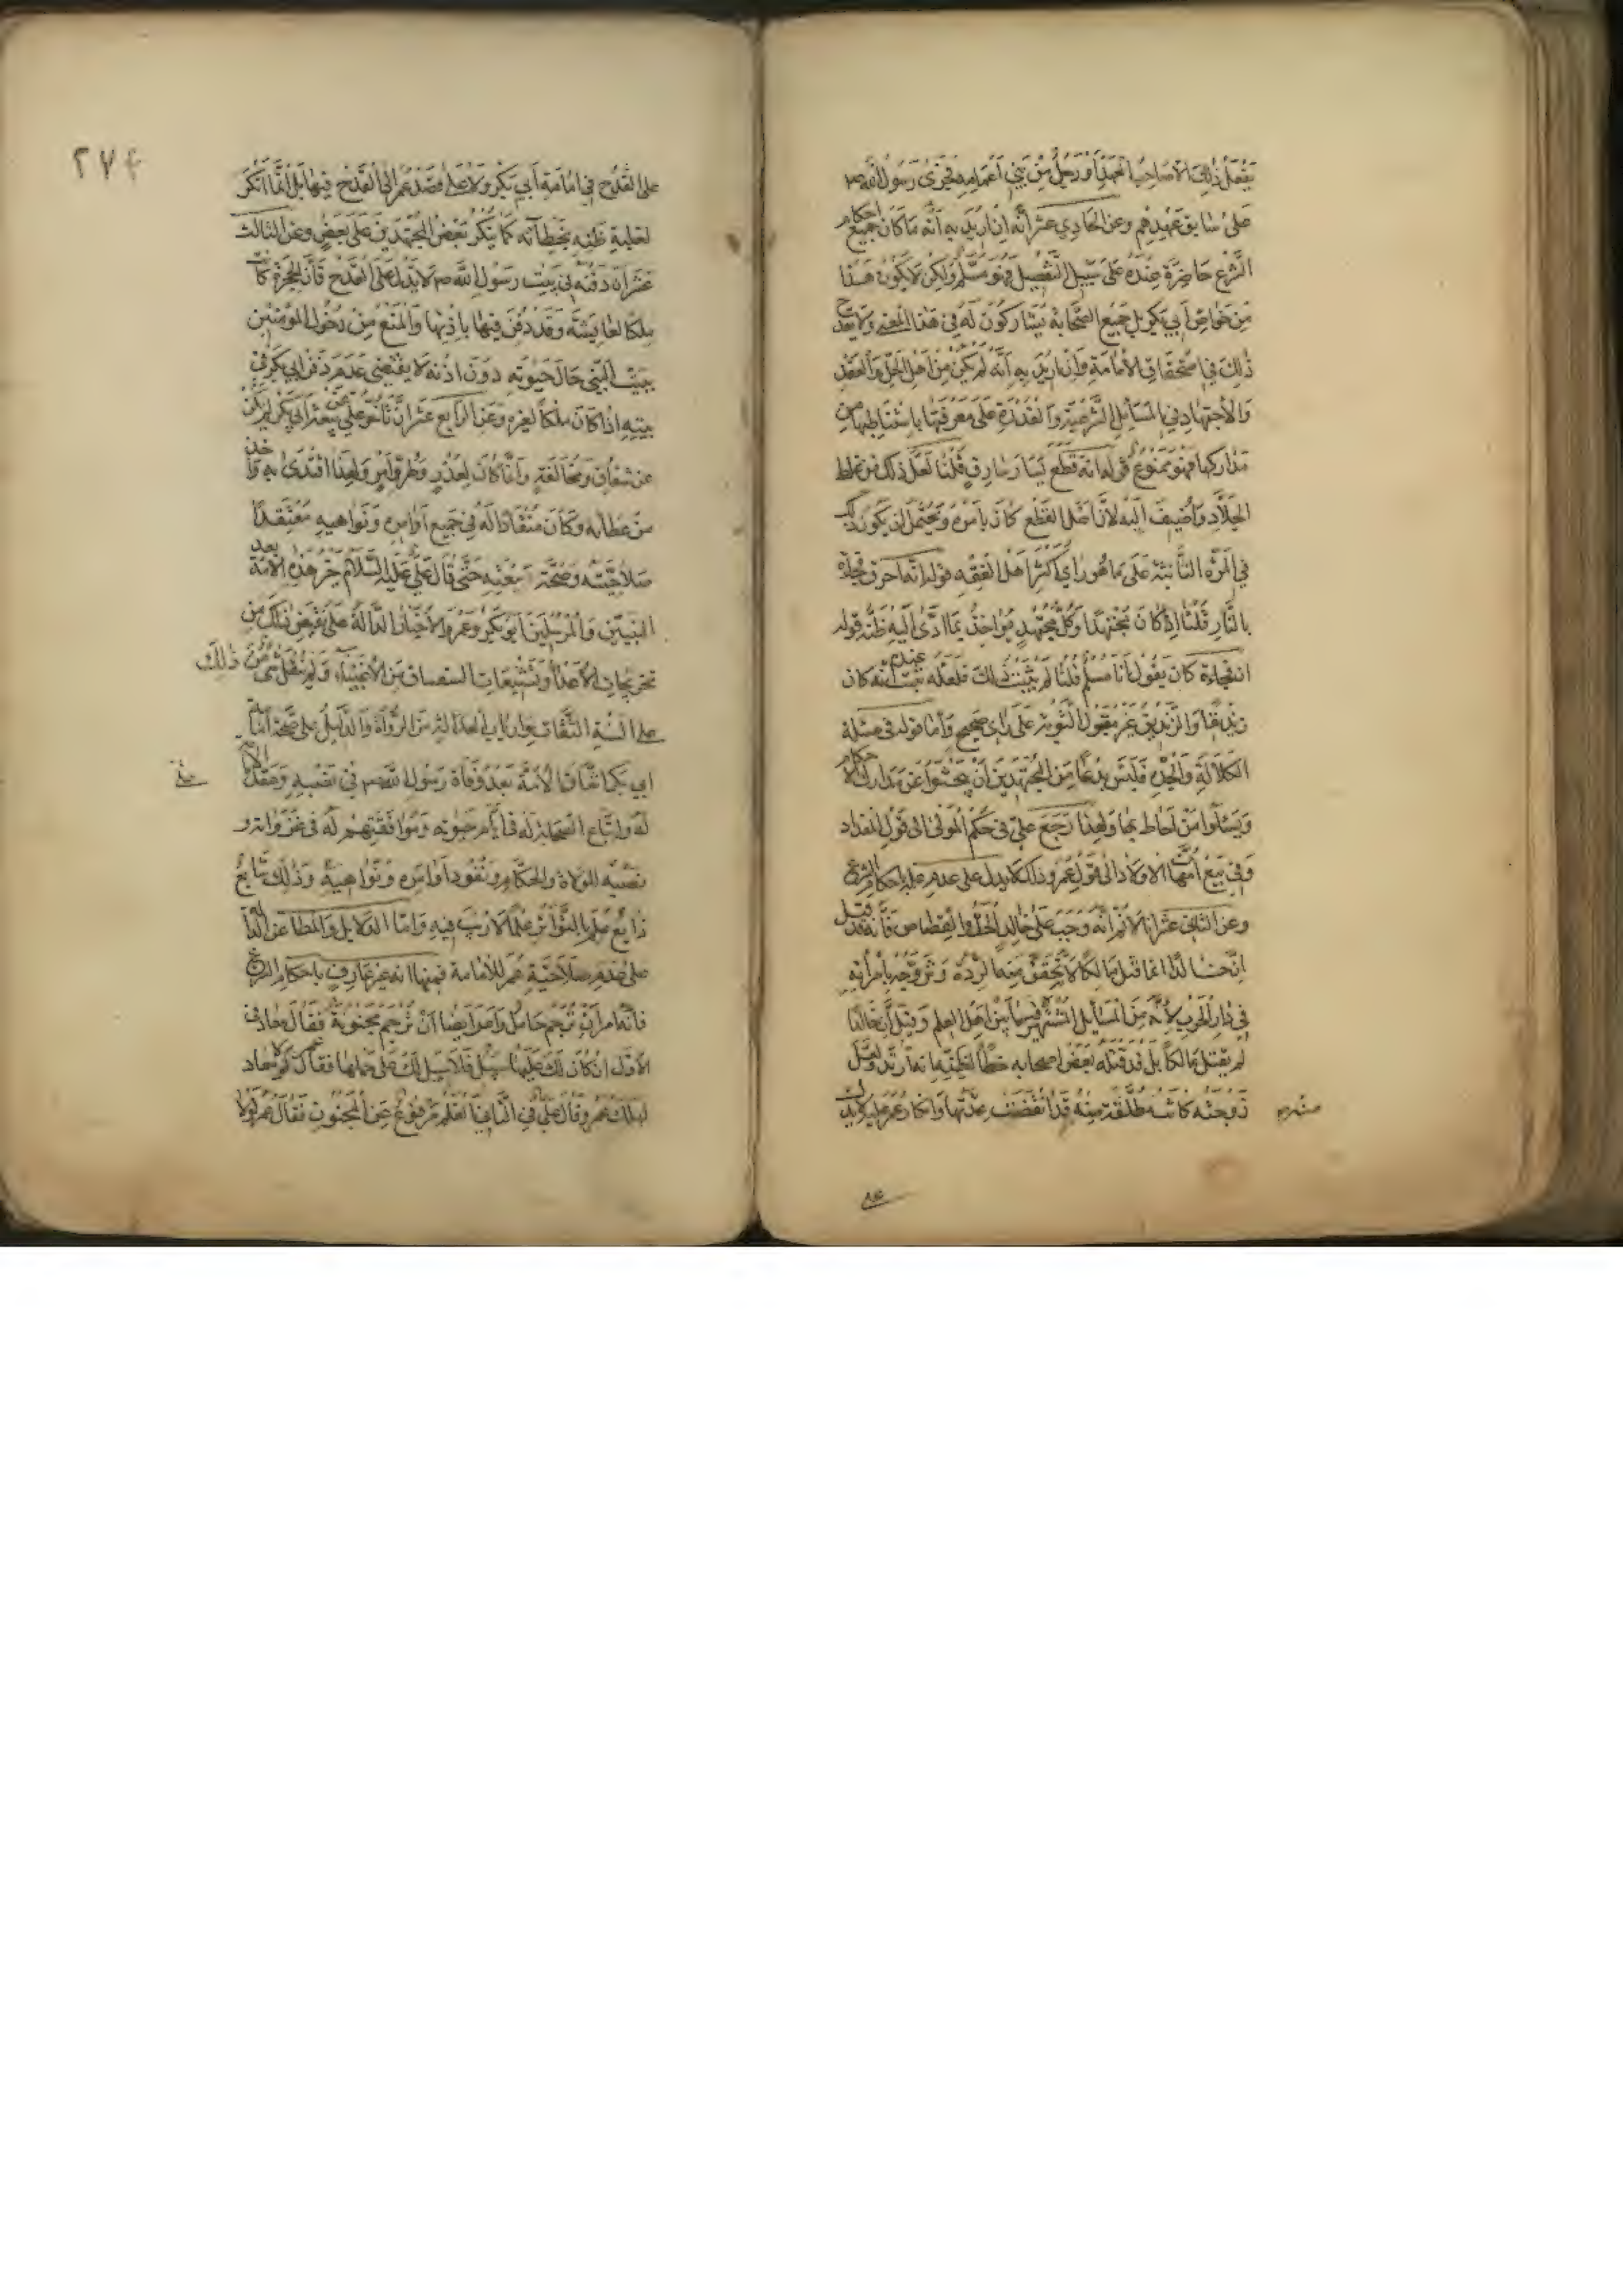 يفعل ذلك الا صاحب العهد او رجل من بني اعمامه فجرى رسول الله ص
على سابق عهدهم وعن الحادي عشر انه ان اريد به انه ما كان جميع احكام
الشرع حاضرة عنده على سبيل التفصيل فهو مسلم ولكن لا يكون هذا
من خواص ابي بكر بل جميع الصحابة يشاركون له في هذا المعنى ولا يقدح
ذلك في استحقاق الامامة وان اريد به انه لم يكن من اهل الحل والعقد
والاجتهاد في المسائل الشرعية والقدرة على معرفتها باستنباطها من
مداركها فهو ممنوع قوله انه قطع يسار سارق قلنا لعل ذلك من غلط
الجلاد واضيف اليه لان اصل القطع كان بامره ويحتمل ان يكون ذلك
في المرة الثانية على ما هو راي اكثر اهل الفقه قوله انه احرق فجاءة
بالنار قلنا اذ كان مجتهدا وكل مجتهد مواخذ بما ادى اليه ظنه قوله
ان فجاءة كان يقول انا مسلم قلنا لم يثبت ذلك فلعله ثبت عندهم انه كان
زنديقا والزنديق غير مقبول التوبة على راي صحيح واما قوله في مسئلة
الكلالة والجد فليس بدعا من المجتهدين ان يبحثوا عن مدارك الاحكام
ويسئلوا من احاط بها ولهذا رجع علي في حكم المذي الى قول المقداد
وفي بيع امهات الاولاد الى قول عمر وذلك لا يدل على عدم علمه باحكام الشرع
وعن الثاني عشر انا لا نم انه وجب على خالد الحد والقصاص فانه قد قيل
ان خالدا انما قتل مالكا لانه تحقق منه الردة وتزوجه بامراته
في دار الحرب لانه من المسايل المشتهر فيها بين اهل العلم وقيل ان خالدا
لم يقتل مالكا بل قد قتله بعض اصحابه خطأ لظنه انه ارتد ولعل
زوجته كانت مطلقة منه قد انقضت عدتها وانكار عمر عليه لا يدل
على القدح في امامة ابي بكر ولا على قصد عمر الى القدح فيها بل انما انكر
لغلبة ظنه بخطائه كما ينكر بعض المجتهدين على بعض وعن الثالث
عشر ان دفنه في بيت رسول الله ص لا يدل على القدح فان الحجرة كانت
ملكا لعايشة وقد دفن فيها باذنها والمنع من دخول المؤمنين
بيت النبي حال حيوته دون اذنه لا يقتضي عدم دفن ابي بكر في
بيته اذا كان ملكا لغيره وعن الرابع عشر ان تاخر علي عن بيعة ابي بكر لم يكن
عن شقاق ومخالفة وانما كان لعذر وطرو امر ولهذا اقتدى به واخذ
من عطائه وكان منقادا له في جميع اوامره ونواهيه معتقدا
صلاحيته وصحة بيعته حتى قال علي عليه السلام خير هذه الامة بعد
النبيين والمرسلين ابو بكر وعمر والاخبار الدالة على نقيض ذلك من
تخرصات الاعداء وتشنيعات الفساق من الاغبياء ولم ينقل شئ من ذلك
على السنة الثقات وارباب العدالة من الرواة والدليل على صحة امامة
ابي بكر اتفاق الامة بعد وفاة رسول الله ص في نصبه وعقد الامامة
له واتباع الصحابة له في ايام حيوته وموافقتهم له في غزواته و
نصبه الولاة والحكام ونفوذ اوامره ونواهيه وذلك شايع
ذايع علم بالتواتر علما لا ريب فيه واما الدلايل والمطاعن الدالة
على عدم صلاحية عمر للامامة فمنها انه غير عارف باحكام الشرع
فانه امر ان ترجم حامل وامر ايضا ان ترجم مجنونة فقال معاذ في
الاول ان كان لك عليها سبيل فلا سبيل لك على حملها فقال عمر لولا معاذ
لهلك عمر وقال علي في الثاني القلم مرفوع عن المجنون فقال عمر لولا
٢٧٤